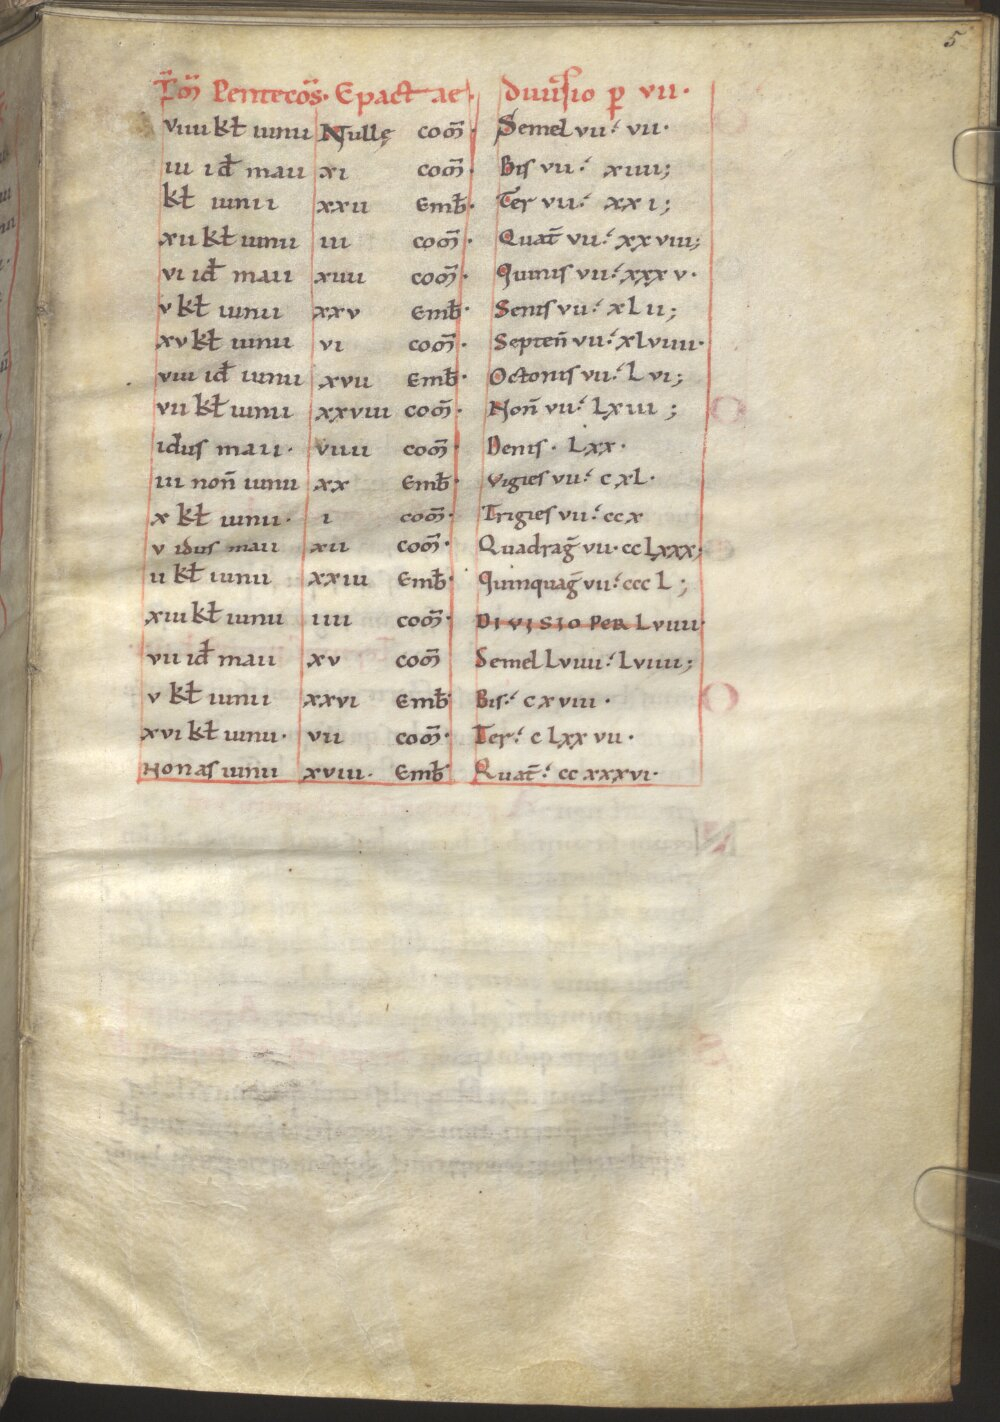 5
T̄m̄ Pentecos̄. Epactae. diuisio ꝑ vii.
viiii kł iunii Nullę com̄. Semel vii. vii.
iii id̄ maii xi com̄. Bis vii. xiiii;
kł iunii xxii Emb̄. Ter vii. xxi;
xii kł iunii iii com̄. Quat̄ vii. xxviii;
vi id̄ maii xiiii com̄. Quinis vii. xxxv.
v kł iunii xxv Emb̄. Senis vii. xLii;
xv kł iunii vi com̄. Septen̄ vii. xLviiii.
viii id̄ iunii xvii Emb̄. Octonis vii. Lvi;
vii kł iunii xxviii com̄. Non̄ vii. Lxiii;
idus maii. viiii com̄. Denis. Lxx.
iii non̄ iunii xx Emb̄. Vigies vii. cxL.
x kł iunii. i com̄. Trigies vii. ccx
v idus maii xii com̄. Quadraḡ vii. ccLxxx;
ii kł iunii xxiii Emb̄. Quinquaḡ vii. cccL;
xiii kł iunii iiii com̄. DIVISIO PER Lviiii.
vii id̄ maii xv com̄ Semel Lviiii. Lviiii;
v kł iunii xxvi Emb̄ Bis. cxviii.
xvi kł iunii. vii com̄. Ter. cLxxvii.
Nonas iunii xviii. Emb̄ Quat̄. ccxxxvi.